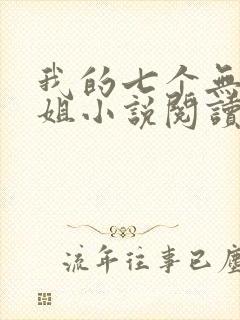 我的七个無
姐小説閱讀
流年往事已塵